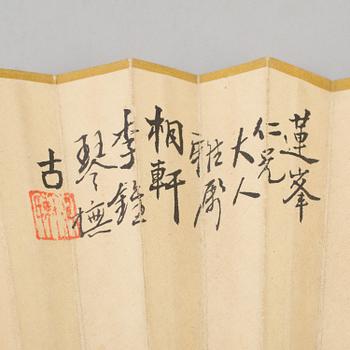 蓮峯
仁兄
大人
雅屬
相軒
李鍾
琴橅
古